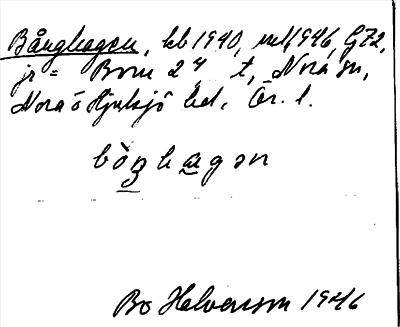 Bånghagen, kb 1940, utl 1946, G72,
jr = Born 2⁴ t, Nora sn,
Nora o Hjulsjö bd. Ör. l.
bòŋhagən
Bo Halvarsson 1946